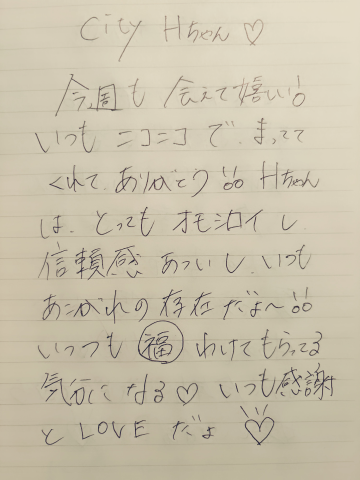 City Hちゃん ♡
今週も 会えて嬉しい!!
いつも ニコニコ で、まってて
くれて、ありがとう!! Hちゃん
は、とっても オモシロイ し
信頼感 あついし、いつも
あこがれの 存在 だよ〜!!
いっつも 福 わけてもらってる
気分に なる♡ いつも感謝
と LOVE だよ ♡